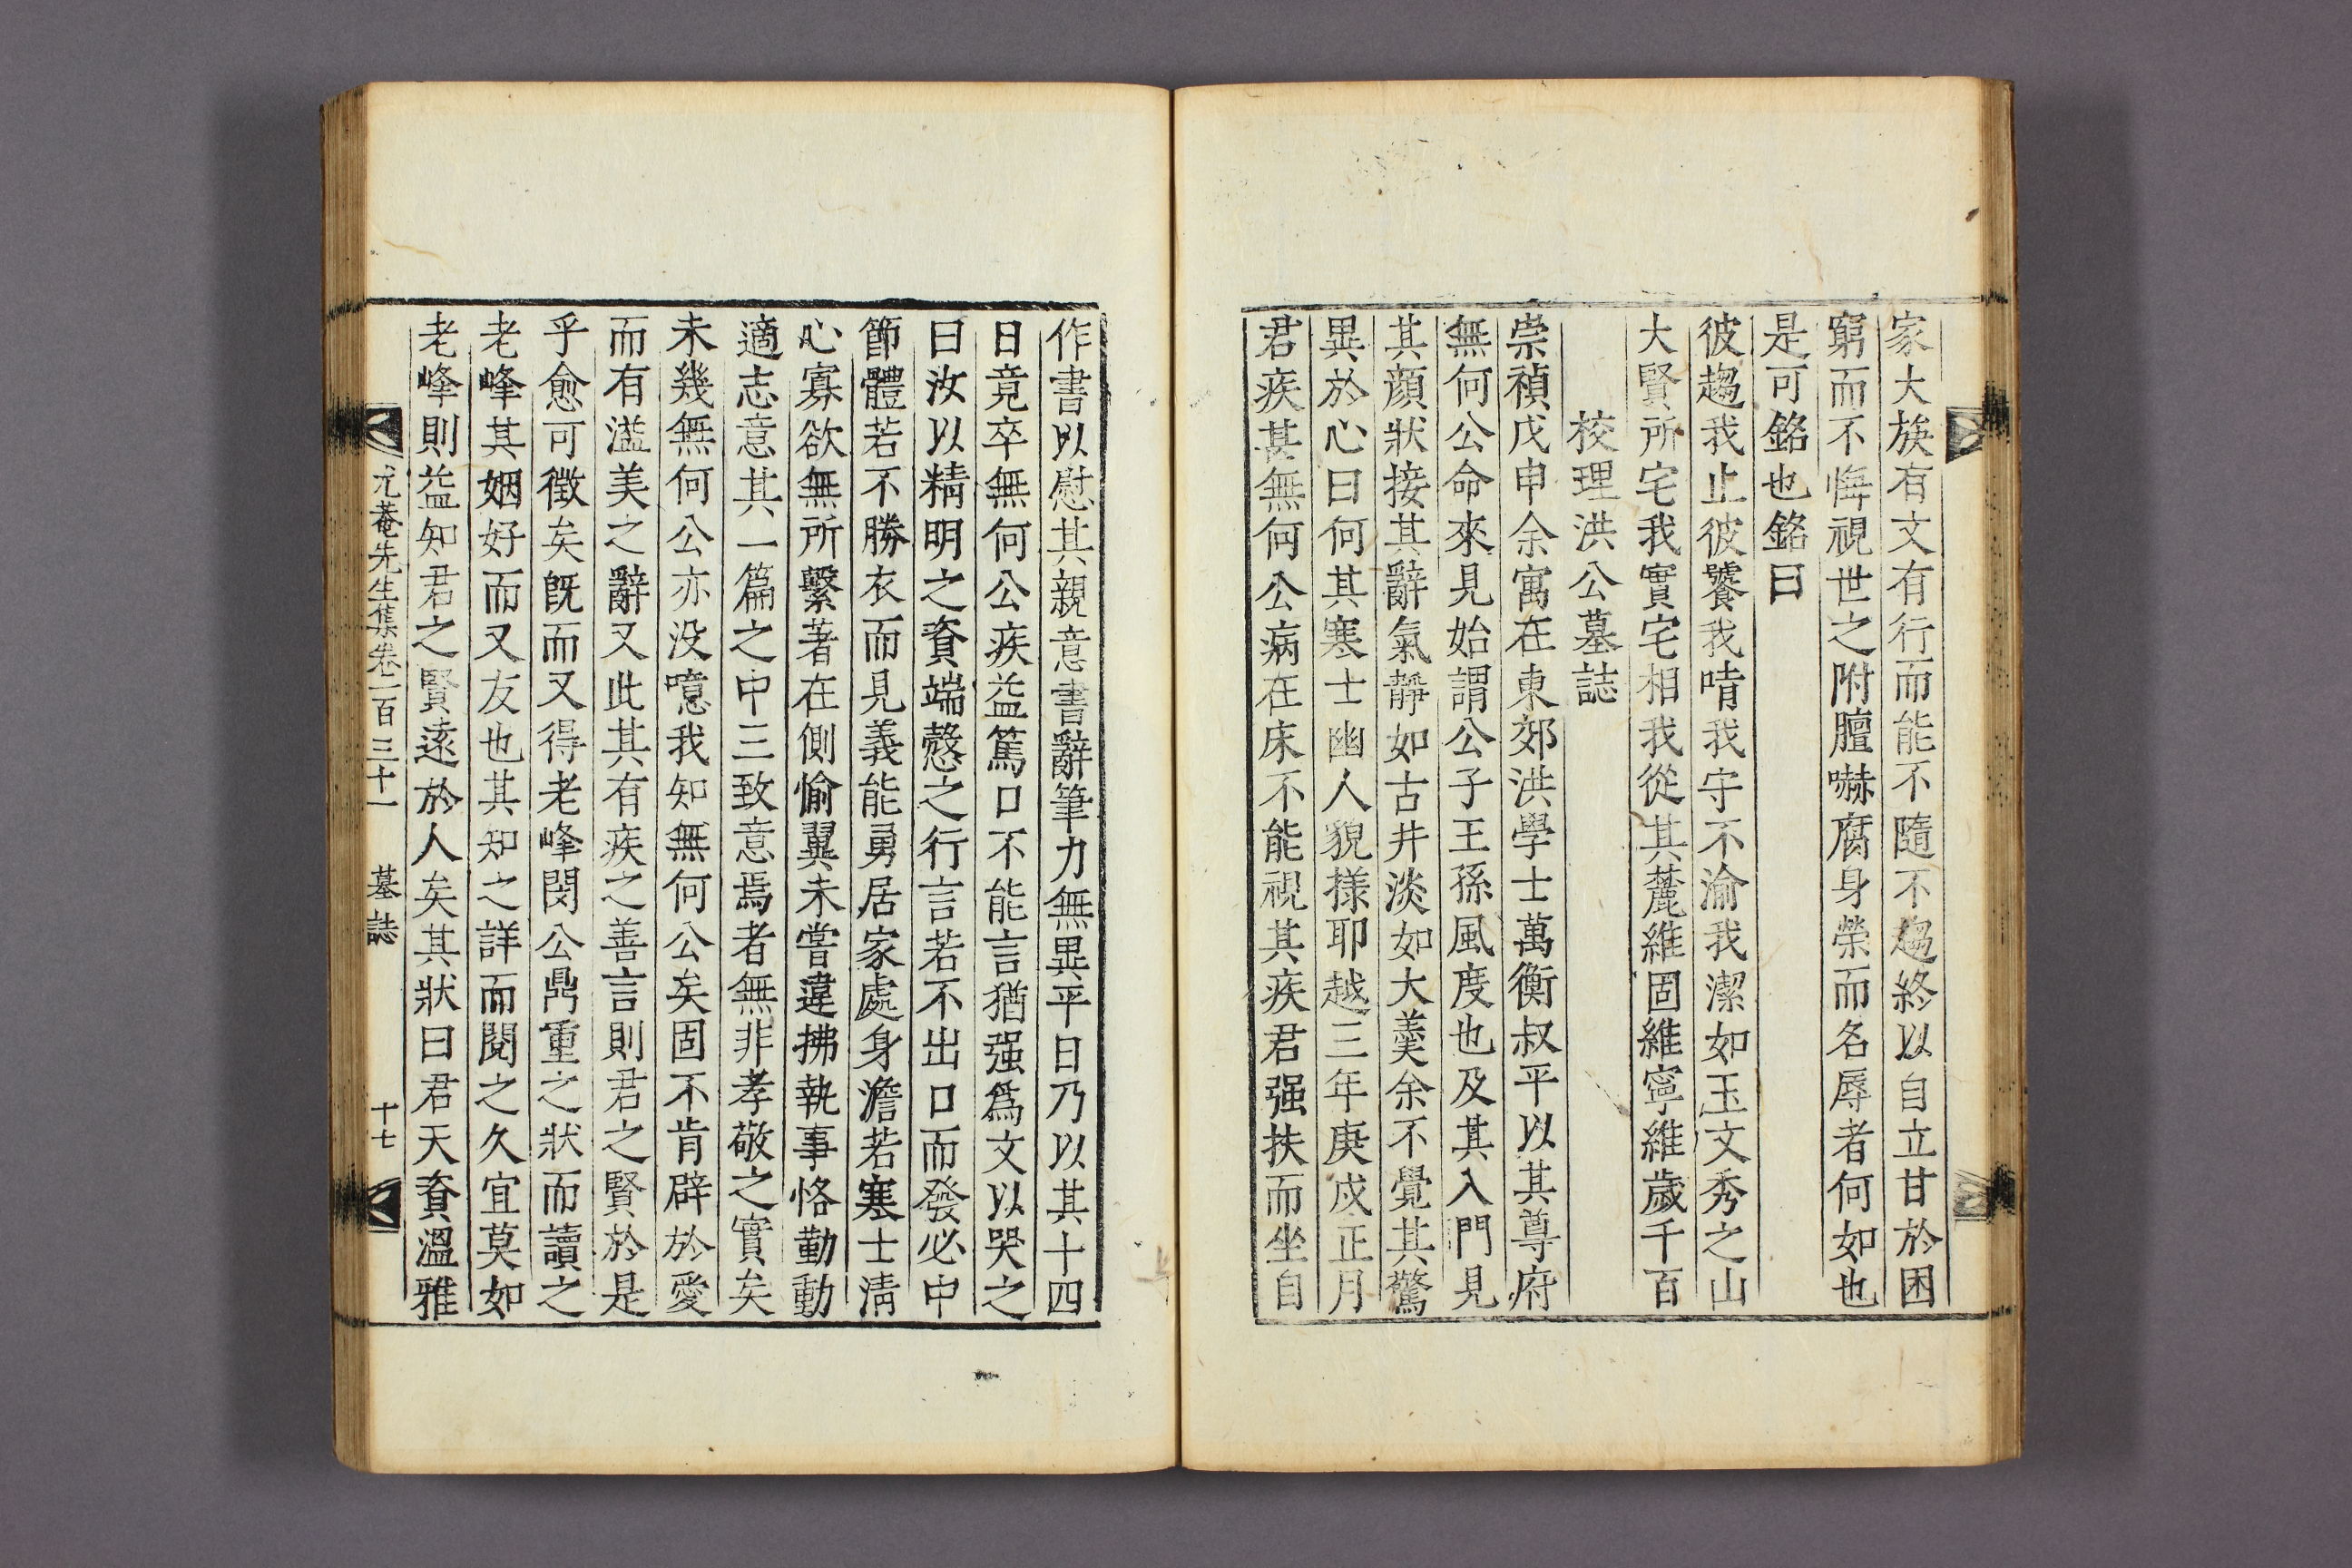 家大族有文有行而能不隨不趨終以自立甘於困
窮而不悔視世之附膻嚇腐身榮而名辱者何如也
是可銘也銘曰
彼趨我止彼饕我啨我守不渝我潔如玉文秀之山
大賢所宅我實宅相我從其麓維固維寧維歲千百
校理洪公墓誌
崇禎戊申余寓在東郊洪學士萬衡叔平以其尊府
無何公命來見始謂公子王孫風度也及其入門見
其顔狀接其辭氣靜如古井淡如大羹余不覺其驚
異於心曰何其寒士幽人貌樣耶越三年庚戌正月
君疾甚無何公病在床不能視其疾君强扶而坐自
作書以慰其親意書辭筆力無異平日乃以其十四
日竟卒無何公疾益篤口不能言猶强爲文以哭之
曰汝以精明之資端慤之行言若不出口而發必中
節體若不勝衣而見義能勇居家處身澹若寒士淸
心寡欲無所繫著在側愉翼未嘗違拂執事恪勤動
適志意其一篇之中三致意焉者無非孝敬之實矣
未幾無何公亦没噫我知無何公矣固不肯辟於愛
而有溢美之辭又此其有疾之善言則君之賢於是
乎愈可徵矣旣而又得老峰閔公鼎重之狀而讀之
老峰其姻好而又友也其知之詳而閱之久宜莫如
老峰則益知君之賢遠於人矣其狀曰君天資溫雅
尤菴先生集卷一百三十一 墓誌 十七